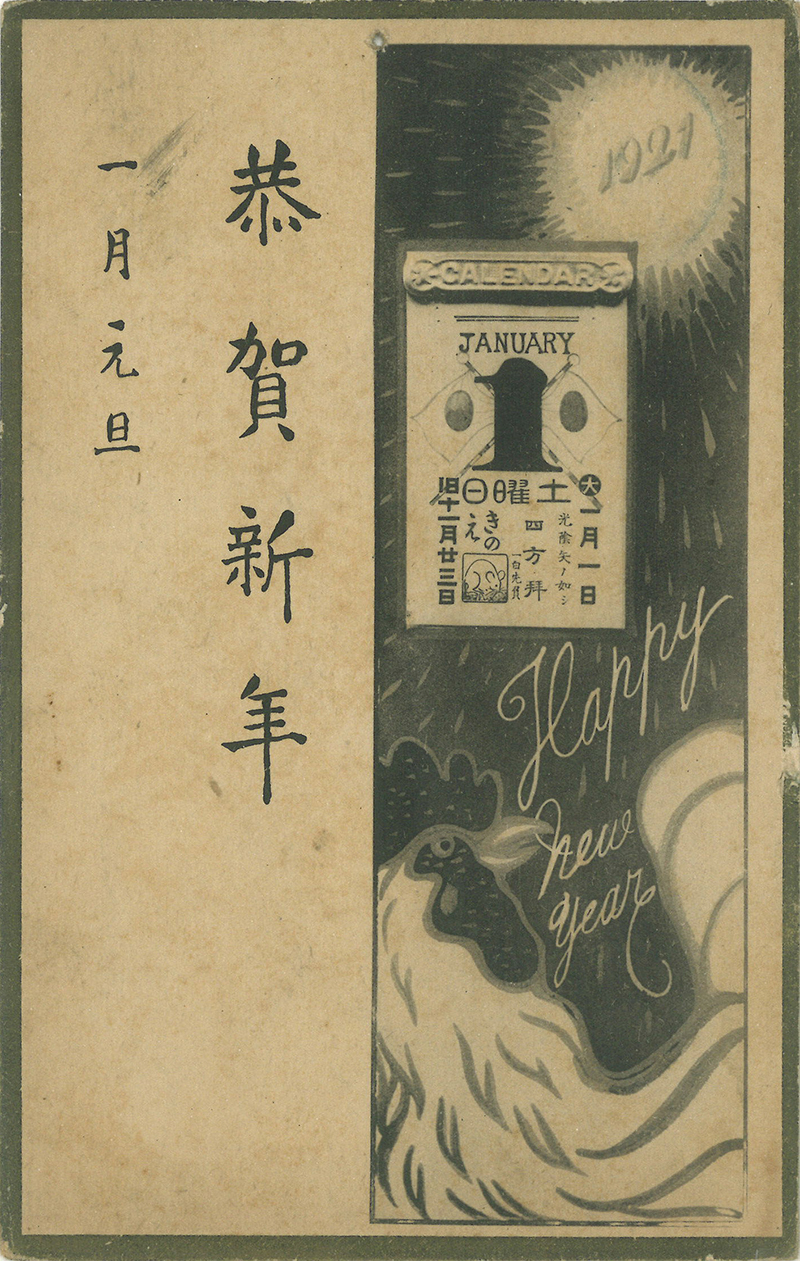 恭賀新年
一月元旦
1921
CALENDAR
JANUARY
1
土曜日
大
一月一日
光陰矢ノ如シ
四方拝
一白先負
きのえ
旧十一月廿三日
Happy
new
year